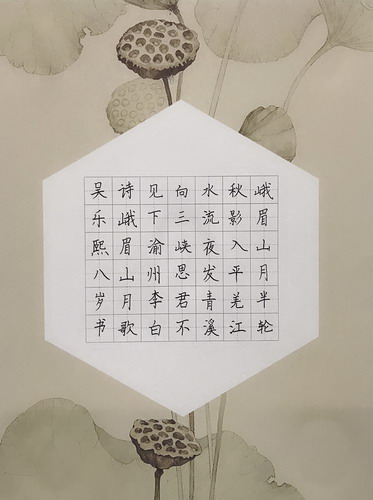 峨眉山月半轮
秋影入平羌江
水流夜发青溪
向三峡思君不
见下渝州李白
诗峨眉山月歌
吴乐熙八岁书